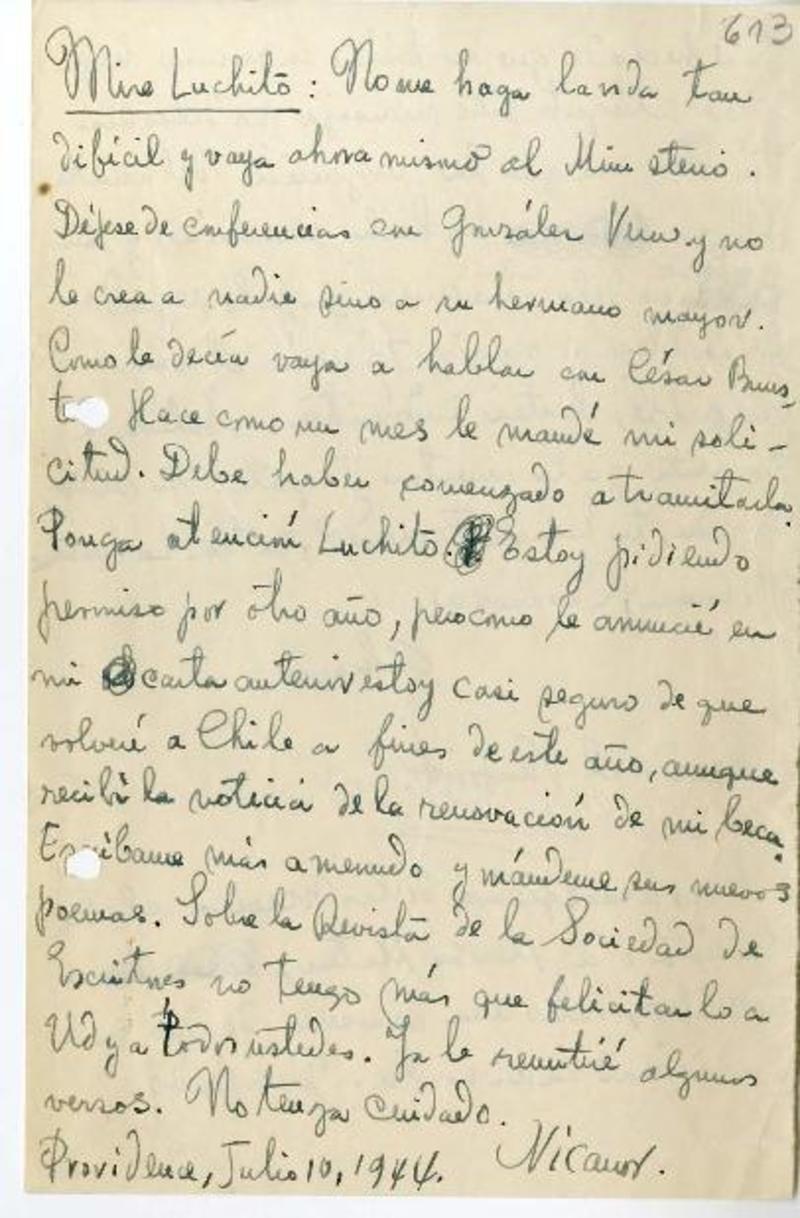 613
Mire Luchito: No me haga la vida tan
difícil y vaya ahora mismo al Ministerio.
Déjese de conferencias con González Vera y no
le crea a nadie sino a su hermano mayor.
Como le decía vaya a hablar con César Bus-
t Hace como un mes le mandé mi soli-
citud. Debe haber comenzado a tramitarla.
Ponga atención Luchito. Estoy pidiendo
permiso por otro año, pero como le anuncié en
mi carta anterior estoy casi seguro de que
volveré a Chile a fines de este año, aunque
recibí la noticia de la renovación de mi beca.
Es ibame más a menudo y mándeme sus nuevos
poemas. Sobre la Revista de la Sociedad de
Escritores no tengo más que felicitarlo a
Ud y a todos ustedes. Ya le remitiré algunos
versos. No tenga cuidado.
Providence, Julio 10, 1944. Nicanor.